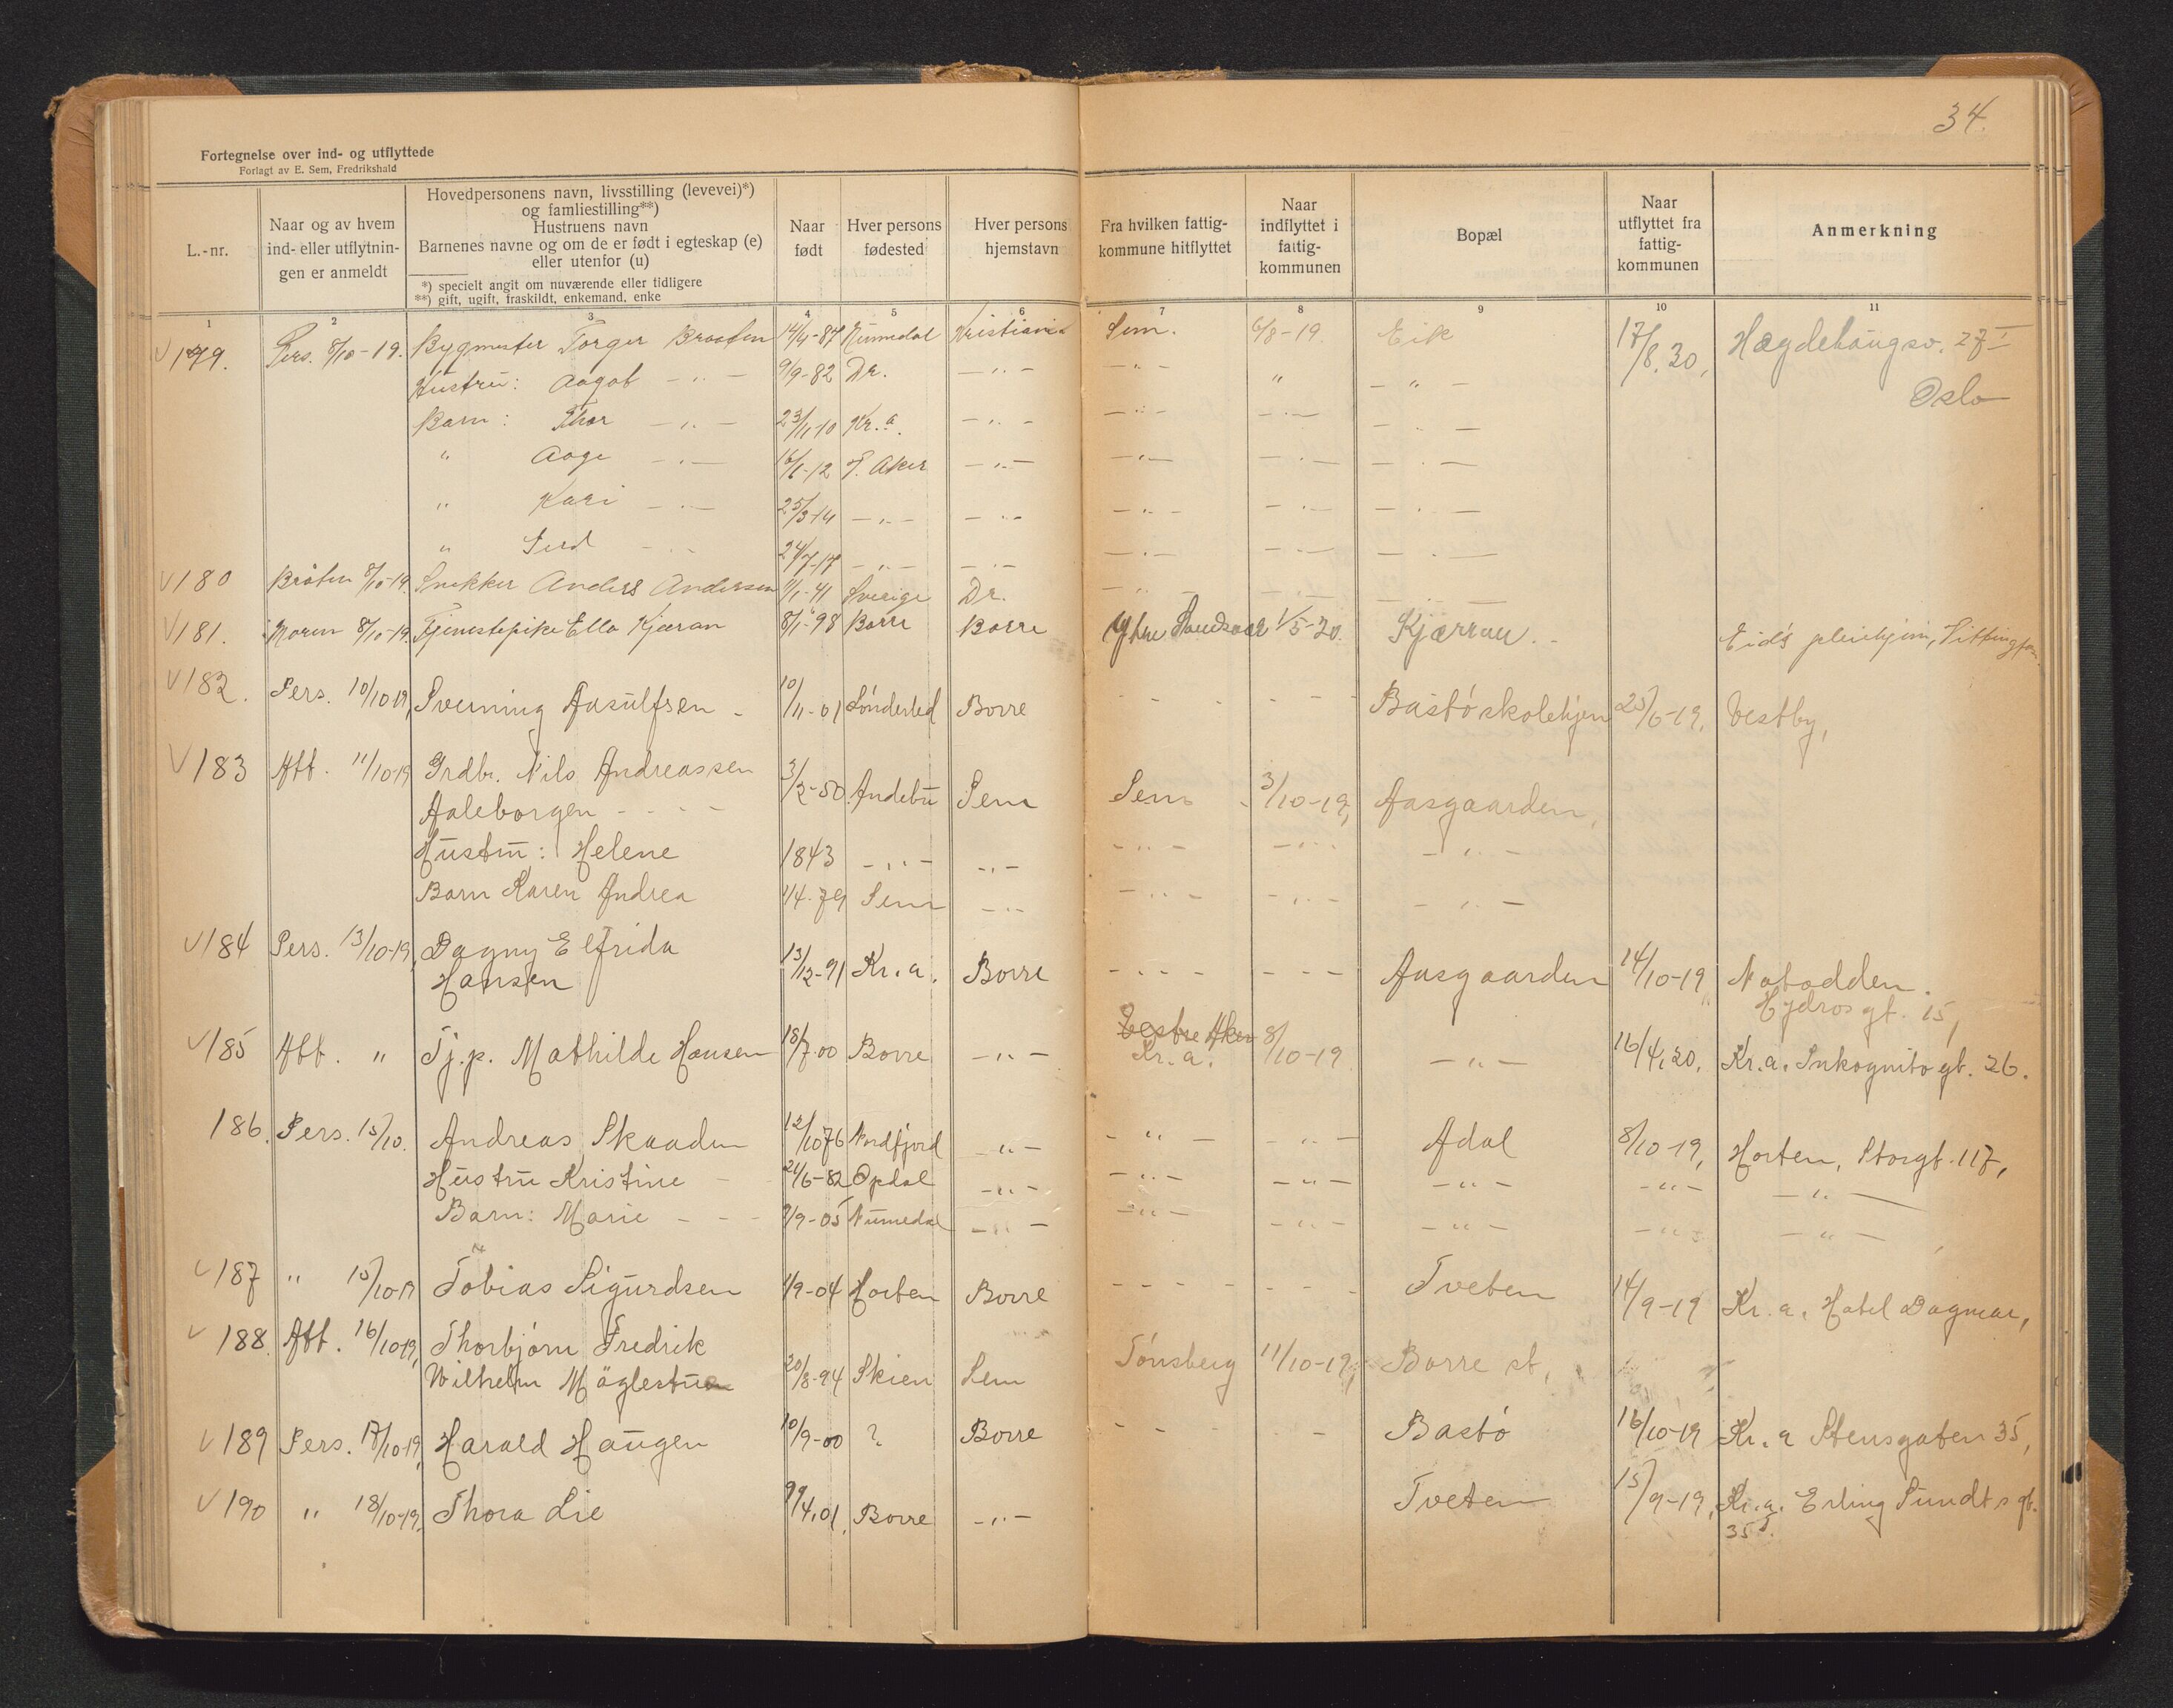 34.
Fortegnelse over ind- og utflyttede
Forlagt av E. Sem, Fredrikshald
L.-nr.
Naar og av hvem ind- eller utflytnin-gen er anmeldt
Hovedpersonens navn, livsstilling (levevei)*)
og famliestilling**)
Hustruens navn
Barnenes navne og om de er født i egteskap (e)
eller utenfor (u)
*) specielt angit om nuværende eller tidligere
**) gift, ugift, fraskildt, enkemand, enke
Naar født
Hver persons fødested
Hver persons hjemstavn
Fra hvilken fattig-kommune hitflyttet
Naar indflyttet i fattig-kommunen
Bopæl
Naar utflyttet fra fattig-kommunen
Anmerkning
1 2 3 4 5 6 7 8 9 10 11
179. Pers. 8/10-19. Bygmester Torger Braaten 14/4-87 Numedal Kristiania Sem. 6/8-19. Eik 17/8.30, Hægdehaugsv. 27 I
Hustru: Aagot -„- 9/9-82 Do. -„- -„- „ -„- Oslo
Barn: Thor -„- 23/11-10 Kr.a. -„- -„- -„- -„-
„ Aage -„- 16/1-12 V. Aker -„- -„- -„- -„-
„ Kari -„- 25/3-14 -„- -„- -„- -„- -„-
„ -„- 24/7-17 -„- -„- -„- -„- -„-
√180 Bråten 8/10-19. Snekker Anders Andersen 1/1-41 Sverige Do. -„- -„- -„-
√181. Moren 8/10-19. Tjenestepike Ella Kjæran 8/1-98 Borre Borre Ytre Sandsvær 1/5-20. Kjærran. Eids pleiehjem,
√182. Pers. 10/10 19, Sverning Aasulfsen - 10/11-01 Søndeled Borre - - - - Bastø skolehjem 25/6-19, Vestby,
√183 Att. 11/10-19 Grdbr. Nils Andreassen
Aaleborgen - - - 3/2-50. Andebu Sem Sem - 3/10-19, Aasgaarden,
Hustru: Helene 1843 -„- -„- -„- -„- -„-
Barn Karen Andrea 1/4-79 Sem -„- -„- -„- -„-
√184 Pers. 13/10-19, Dagny Elfrida
Hansen 13/12-91 Kr.a. Borre - - - - - - - Aasgaarden 14/10-19 Notodden.
Hydrosgt. 15,
√185 Att. „ Tj.p. Mathilde Hansen 18/7-00 Borre -„- Vestre Aker Kr.a. 8/10-19 -„- 16/4,20, Kr.a. Inkognito gt. 26.
186. Pers. 15/10. Andreas Skaaden 12/10 76 Nordfjord -„- -„- -„- Adal 8/10-19, Horten, Storgt. 117,
Hustru Kristine - 24/6-82 Opdal -„- -„- -„- -„- -„- -„-
Barn: Marie - - - 9/9-05 Numedal -„- -„- -„- -„- -„- -„-
√187 „ 15/10-19 Tobias Sigurdsen 1/9-04 Horten Borre - - - - - - - Tveten 14/9-19 Kr.a. Hotel Dagmar,
√188. Att. 16/10-19, Thorbjørn Fredrik
Wilhelm Møglestue 20/8-94 Skien Sem Tønsberg 11/10-19, Borre st,
√189 Pers. 17/10-19, Harald Haugen 10/9-00 ? Borre - - - - Bastø 16/10-19 Kr.a Stensgaten 35,
√190 „ 18/10-19. Thora Lie 4,01. Borre -„- Tveten 15/9-19, Kr.a. Erling Sundts gt.
35 I.